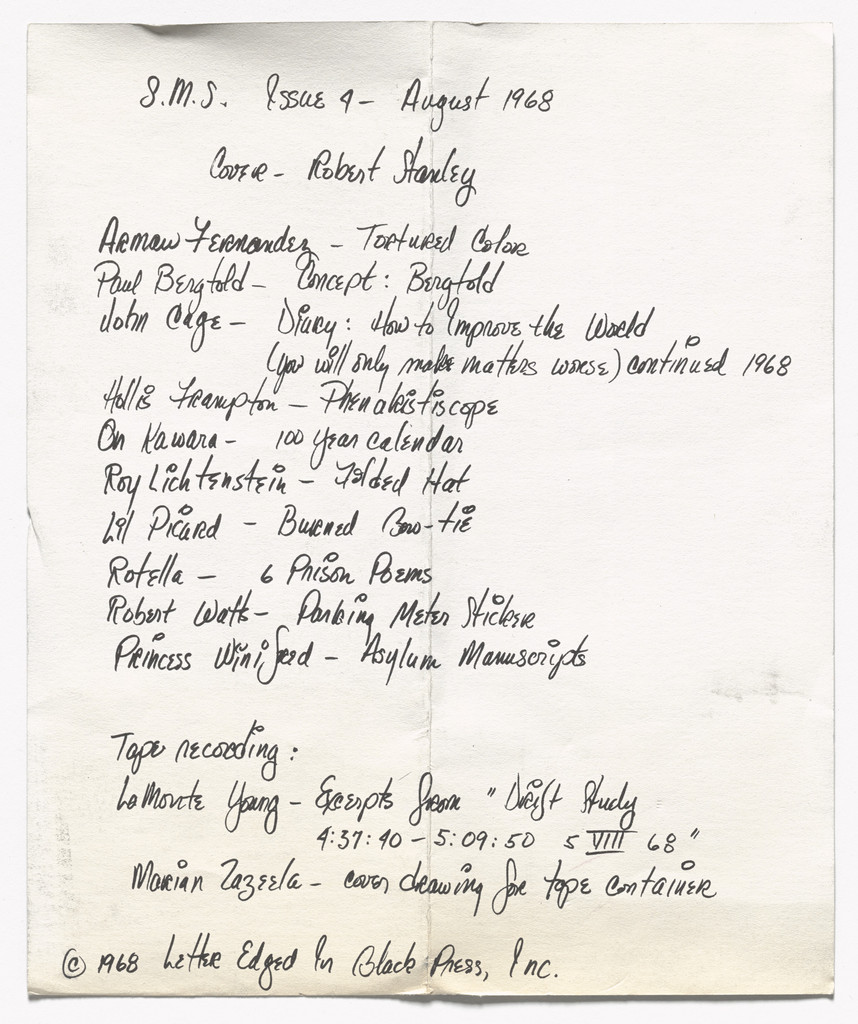 S.M.S. Issue 4 - August 1968
Cover - Robert Stanley
Arman Fernandez - Tortured Color
Paul Bergtold - Concept: Bergtold
John Cage - Diary: How to Improve the World
(you will only make matters worse) continued 1968
Hollis Frampton - Phenakistiscope
On Kawara - 100 year calendar
Roy Lichtenstein - Folded Hat
Lil Picard - Burned Bow-tie
Rotella - 6 Prison Poems
Robert Watts - Parking Meter Sticker
Princess Winifred - Asylum Manuscripts
Tape recording:
La Monte Young - Excerpts from "Drift Study
4:37:40 - 5:09:50 5 VIII 68"
Marian Zazeela - cover drawing for tape container
© 1968 Letter Edged In Black Press, Inc.